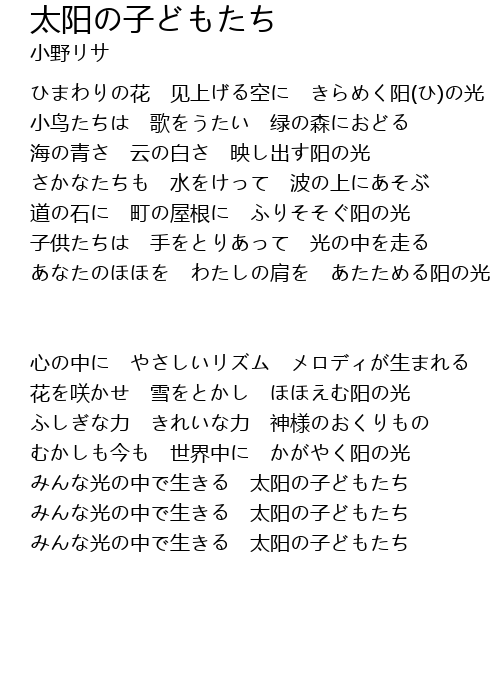 太阳の子どもたち
小野リサ
ひまわりの花　见上げる空に　きらめく阳(ひ)の光
小鸟たちは　歌をうたい　绿の森におどる
海の青さ　云の白さ　映し出す阳の光
さかなたちも　水をけって　波の上にあそぶ
道の石に　町の屋根に　ふりそそぐ阳の光
子供たちは　手をとりあって　光の中を走る
あなたのほほを　わたしの肩を　あたためる阳の光
心の中に　やさしいリズム　メロディが生まれる
花を咲かせ　雪をとかし　ほほえむ阳の光
ふしぎな力　きれいな力　神様のおくりもの
むかしも今も　世界中に　かがやく阳の光
みんな光の中で生きる　太阳の子どもたち
みんな光の中で生きる　太阳の子どもたち
みんな光の中で生きる　太阳の子どもたち